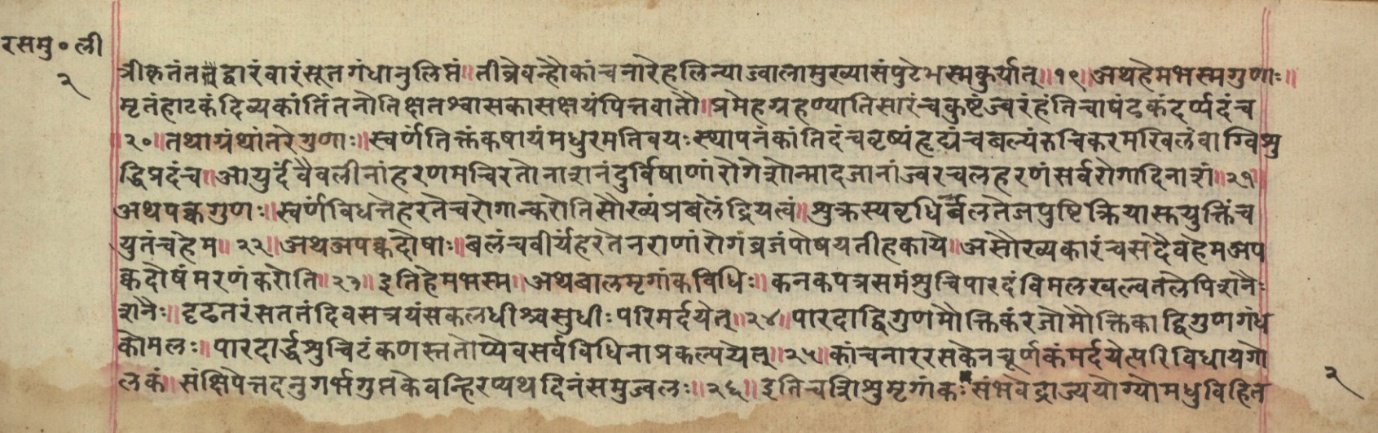 रसमु॰ली
२
त्रीकृतंतत्तद्वारंवारंसूतगंधानुलिप्तं॥तीव्रेवन्हौकांचनारेहलिन्याज्वालामुख्यासंपुटेभस्मकुर्यात्॥१९॥अथहेमभस्मगुणाः॥
मृतंहाटकंदिव्यकांतिंतनोतिक्षतश्वासकासक्षयंपित्तवातौ॥प्रमेहग्रहण्यातिसारंचकुष्टंज्वरंहंतिचाषंढकंदर्प्पदंच
॥२०॥तथाग्रंथांतरेगुणाः॥स्वर्णतिक्तंकषायंमधुरमतिवयःस्थापनंकांतिदंचवृष्यंहृद्यंचबल्यंरुचिकरमखिलंवाग्विशु
द्धिप्रदंच॥आयुर्दंवैवलीनांहरणमचिरतोनाशनंदुर्विषाणांरोगेशोन्मादजानांज्वरचलहरणंसर्वरोगादिनाशं॥२१॥
अथपक्वगुणः॥स्वर्णविधत्तेहरतेचरोगान्करोतिसौख्यंप्रबलेंद्रियत्वं॥शुक्रस्यवृधिर्बलतेजपुष्टिक्रियास्तयुक्तिंच
युतंचहेम॥२२॥अथअपक्वदोषाः॥बलंचवीर्यंहरतेनराणांरोगंव्रजंपोषयतीहकाये॥असौख्यकारंचसदैवहेमअप
क्वदोषंमरणंकरोति॥२३॥इतिहेमभस्म॥अथबालमृगांकविधिः॥कनकपत्रसमंशुचिपारदंविमलखल्वतलेपिशनैः
शनैः॥दृढतरंसततंदिवसत्रयंसकलधीश्वसुधीःपरिमर्दयेत्॥२४॥पारदाद्विगुणमौक्तिकंरजोमौक्तिकाद्विगुणगंध
कोमलः॥पारदार्द्धशुचिटंकणस्ततोप्येवसर्वविधिनाप्रकल्पयेत्॥२५॥कांचनाररसकेनचूर्णकंमर्दयेत्परिविधायगो
लकं॥संक्षिपेत्तदनुगर्भगुप्तकेवन्हिरप्यथदिनंसमुज्वलः॥२६॥इतिचशिशुमृगांकःसंभवेद्राज्ययोग्योमधुविहित
२